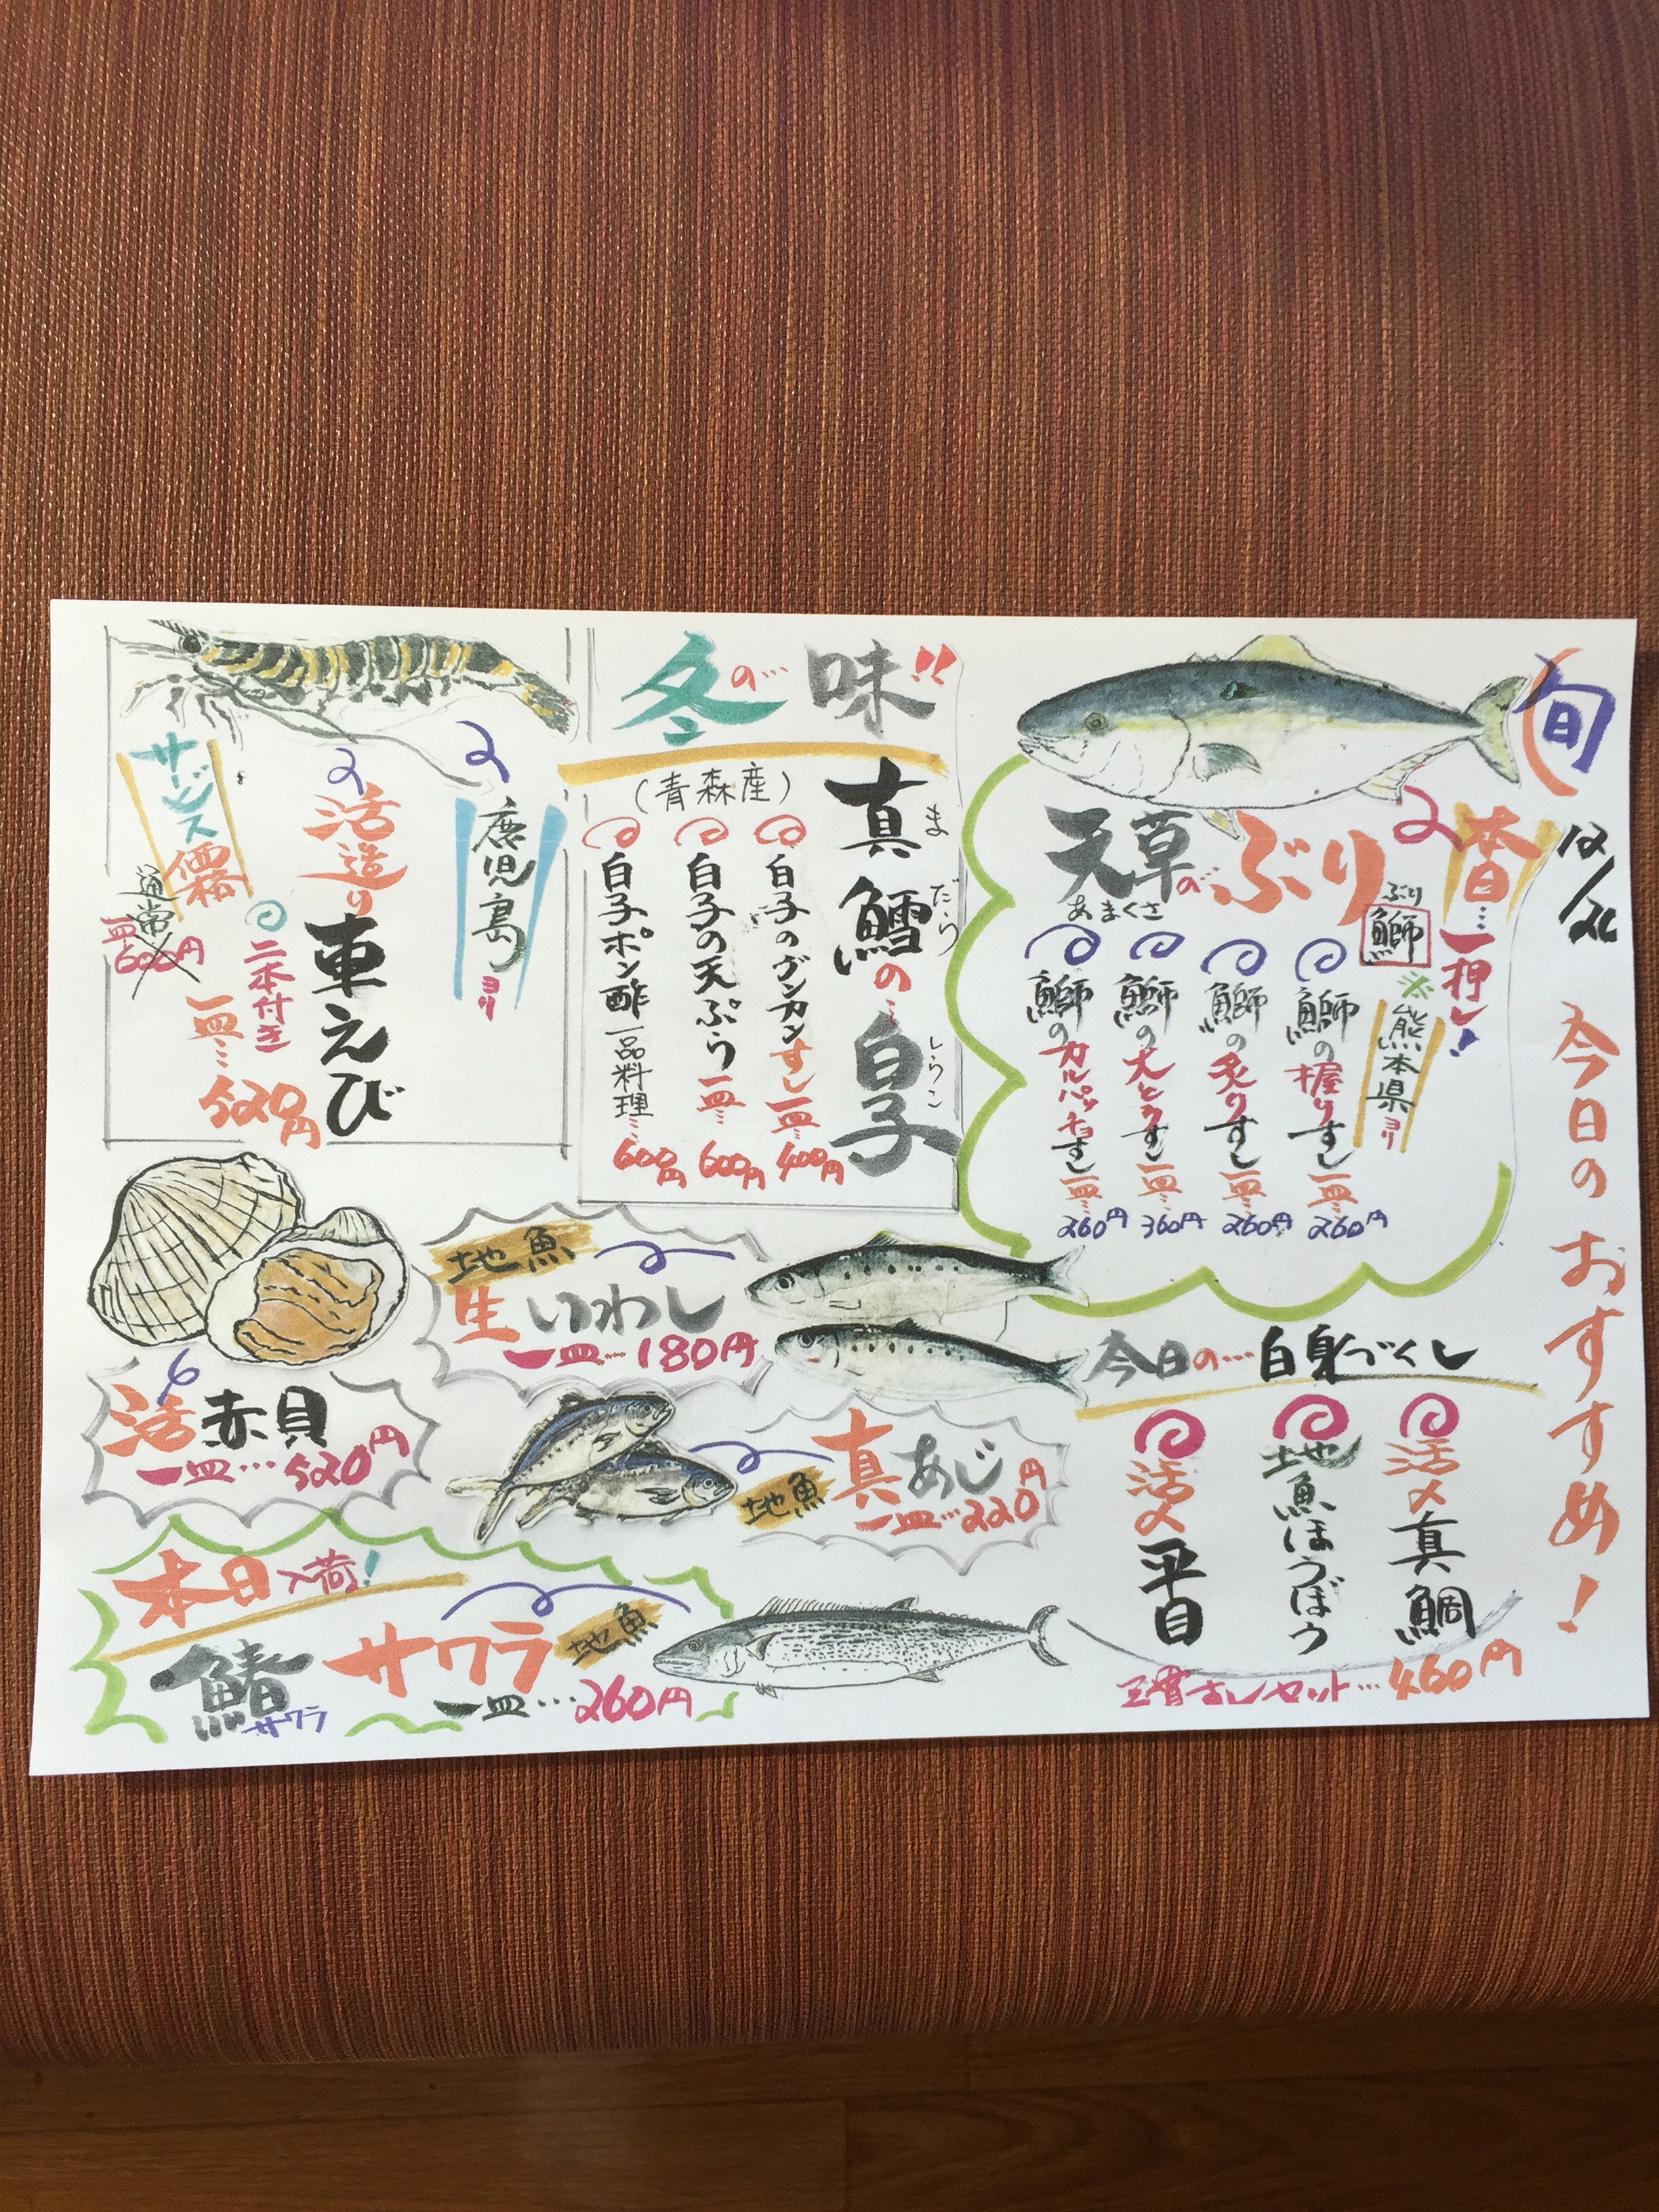 旬
12/26 今日のおすすめ!
本日…一押し!
天草のぶり
あまくさ
ぶり
鰤
※熊本県ヨリ
鰤の握りすし一皿…260円
鰤の炙りすし一皿…260円
鰤の大とろすし一皿…360円
鰤のカルパッチョすし一皿…260円
冬の味!!
真鱈の…白子
まだら
しらこ
(青森産)
白子のグンカンすし一皿…400円
白子の天ぷら一皿…600円
白子ポン酢一品料理…600円
鹿児島ヨリ
活造り車えび
二本付き
一皿…520円
サービス価格
通常
一皿600円
地魚
生いわし
一皿…180円
活赤貝
一皿…520円
地魚
真あじ
一皿…220円
今日の…白身づくし
活〆真鯛
地魚ほうぼう
活〆平目
三貫すしセット…460円
本日入荷!
鰆サワラ
サワラ
地魚
一皿…260円